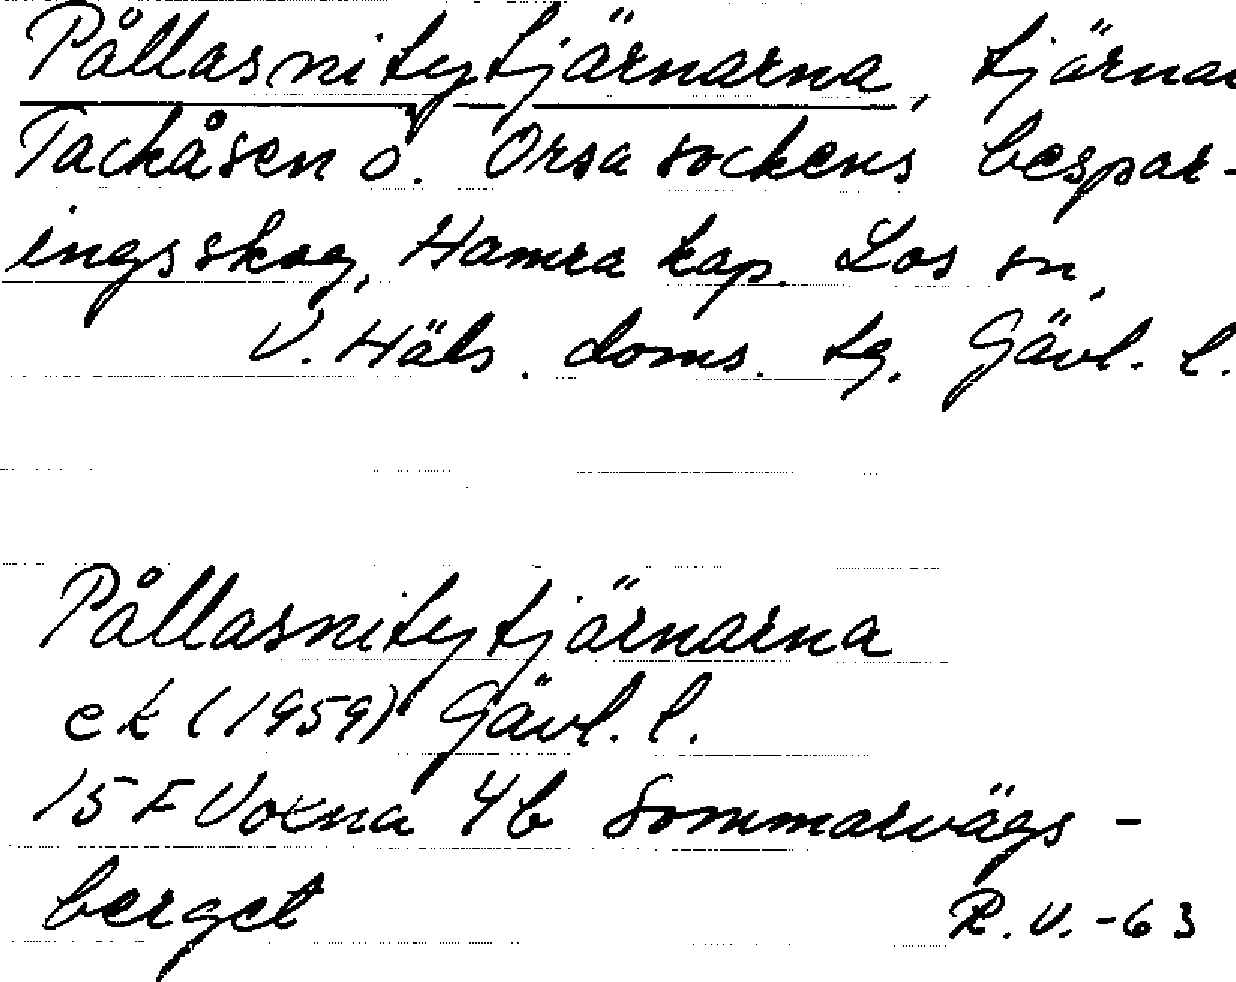 Pållasnitytjärnarna, tjärnar
Tackåsen o. Orsa sockens bespar-
ingsskog, Hamra kap. Los sn,
V. Häls. doms. tg. Gävl. l.
Pållasnitytjärnarna
ek (1959) Gävl. l.
15 F Voxna 4b Sommarvägs-
berget R.V. -63